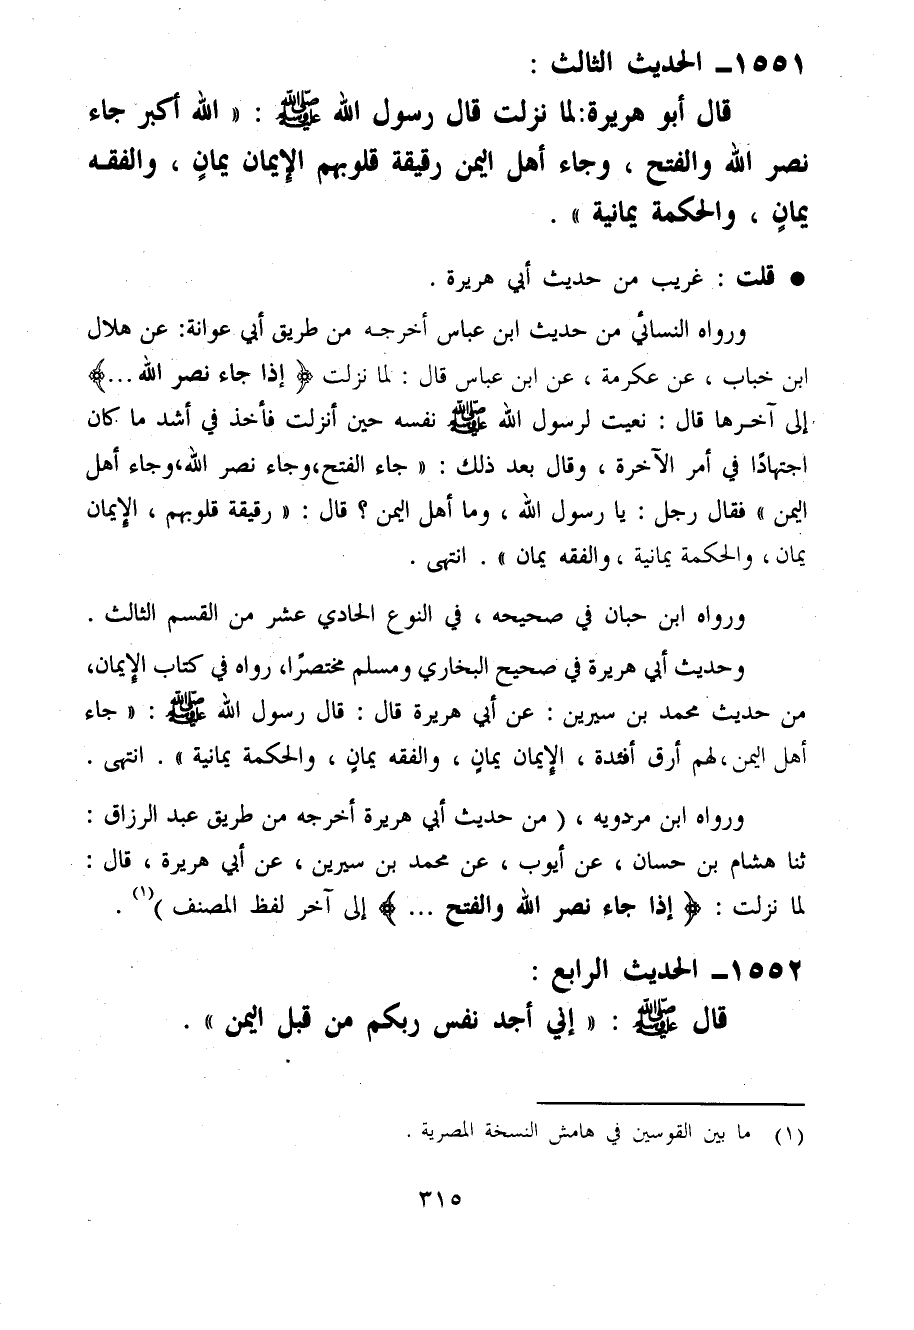 ١٥٥١ـ الحديث الثالث :
قال أبو هريرة:لما نزلت قال رسول الله ﷺ : « الله أكبر جاء
نصر الله والفتح ، وجاء أهل اليمن رقيقة قلوبهم الإيمان يمانٍ ، والفقه
يمانٍ ، والحكمة يمانية » .
● قلت : غريب من حديث أبي هريرة .
ورواه النسائي من حديث ابن عباس أخرجه من طريق أبي عوانة: عن هلال
ابن خباب ، عن عكرمة ، عن ابن عباس قال : لما نزلت ﴿ إذا جاء نصر الله ...﴾
إلى آخرها قال : نعيت لرسول الله ﷺ نفسه حين أنزلت فأخذ في أشد ما كان
اجتهادًا في أمر الآخرة ، وقال بعد ذلك : « جاء الفتح،وجاء نصر الله،وجاء أهل
اليمن » فقال رجل : يا رسول الله ، وما أهل اليمن ؟ قال : « رقيقة قلوبهم ، الإيمان
يمان ، والحكمة يمانية ، والفقه يمان » . انتهى .
ورواه ابن حبان في صحيحه ، في النوع الحادي عشر من القسم الثالث .
وحديث أبي هريرة في صحيح البخاري ومسلم مختصرًا، رواه في كتاب الإيمان،
من حديث محمد بن سيرين : عن أبي هريرة قال : قال رسول الله ﷺ : « جاء
أهل اليمن،لهم أرق أفئدة ، الإيمان يمانٍ ، والفقه يمانٍ ، والحكمة يمانية » . انتهى .
ورواه ابن مردويه ، ( من حديث أبي هريرة أخرجه من طريق عبد الرزاق :
ثنا هشام بن حسان ، عن أيوب ، عن محمد بن سيرين ، عن أبي هريرة ، قال :
لما نزلت : ﴿ إذا جاء نصر الله والفتح ... ﴾ إلى آخر لفظ المصنف )(١) .
١٥٥٢ـ الحديث الرابع :
قال ﷺ : « إني أجد نفس ربكم من قبل اليمن » .
(١) ما بين القوسين في هامش النسخة المصرية .
٣١٥